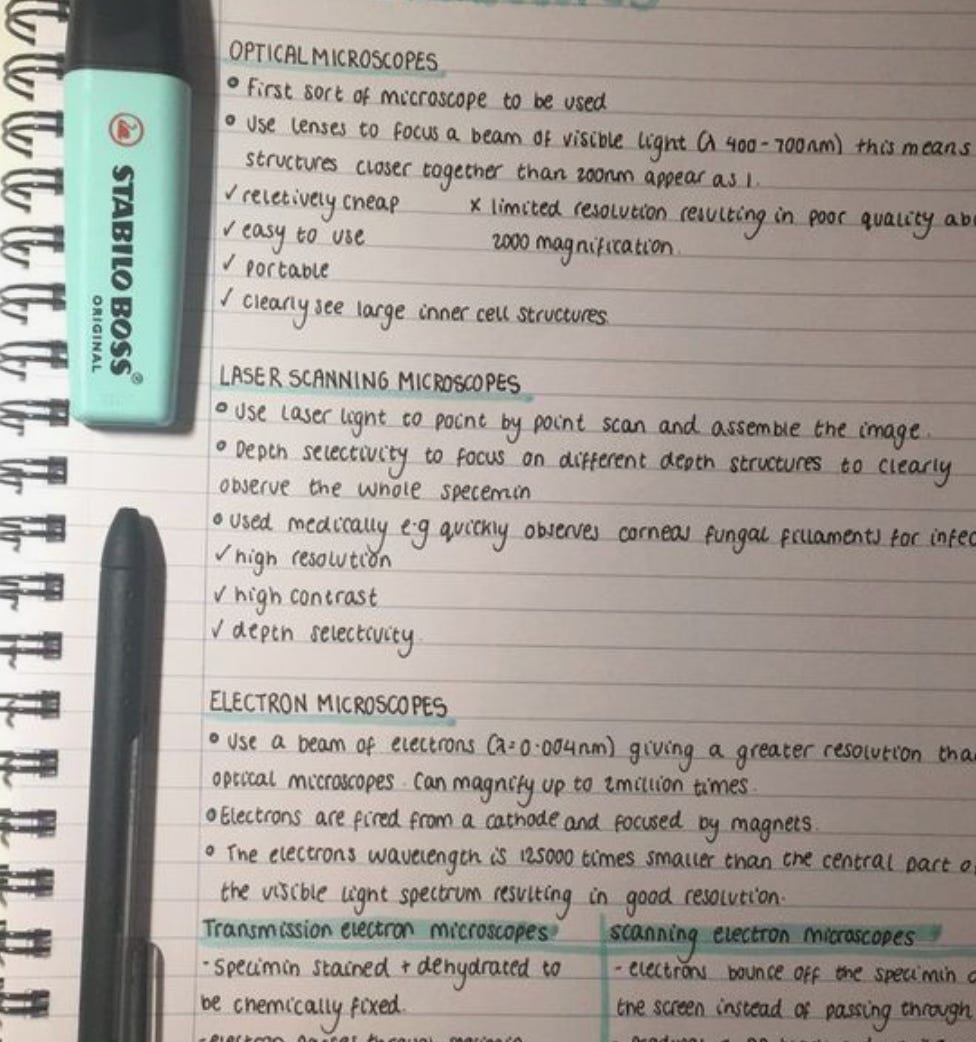 OPTICAL MICROSCOPES
• First sort of microscope to be used
• Use lenses to focus a beam of visible light (λ 400-700nm) this means
structures closer together than 200nm appear as 1.
✓ reletively cheap x limited resolution resulting in poor quality
✓ easy to use 2000 magnification.
✓ portable
✓ clearly see large inner cell structures.
LASER SCANNING MICROSCOPES
• Use laser light to point by point scan and assemble the image.
• Depth selectivity to focus on different depth structures to clearly
observe the whole specemin
• Used medically e.g quickly observes corneas fungal filaments for
✓ high resolution
✓ high contrast
✓ depth selectivity.
ELECTRON MICROSCOPES
• Use a beam of electrons (λ=0.004nm) giving a greater resolution
optical microscopes. Can magnify up to 2million times.
• Electrons are fired from a cathode and focused by magnets.
• The electrons wavelength is 125000 times smaller than the central part
the visible light spectrum resulting in good resolution.
Transmission electron microscopes scanning electron microscopes
- Specimin stained + dehydrated to - electrons bounce off the specimin
be chemically fixed. the screen instead of passing through
STABILO BOSS®
ORIGINAL